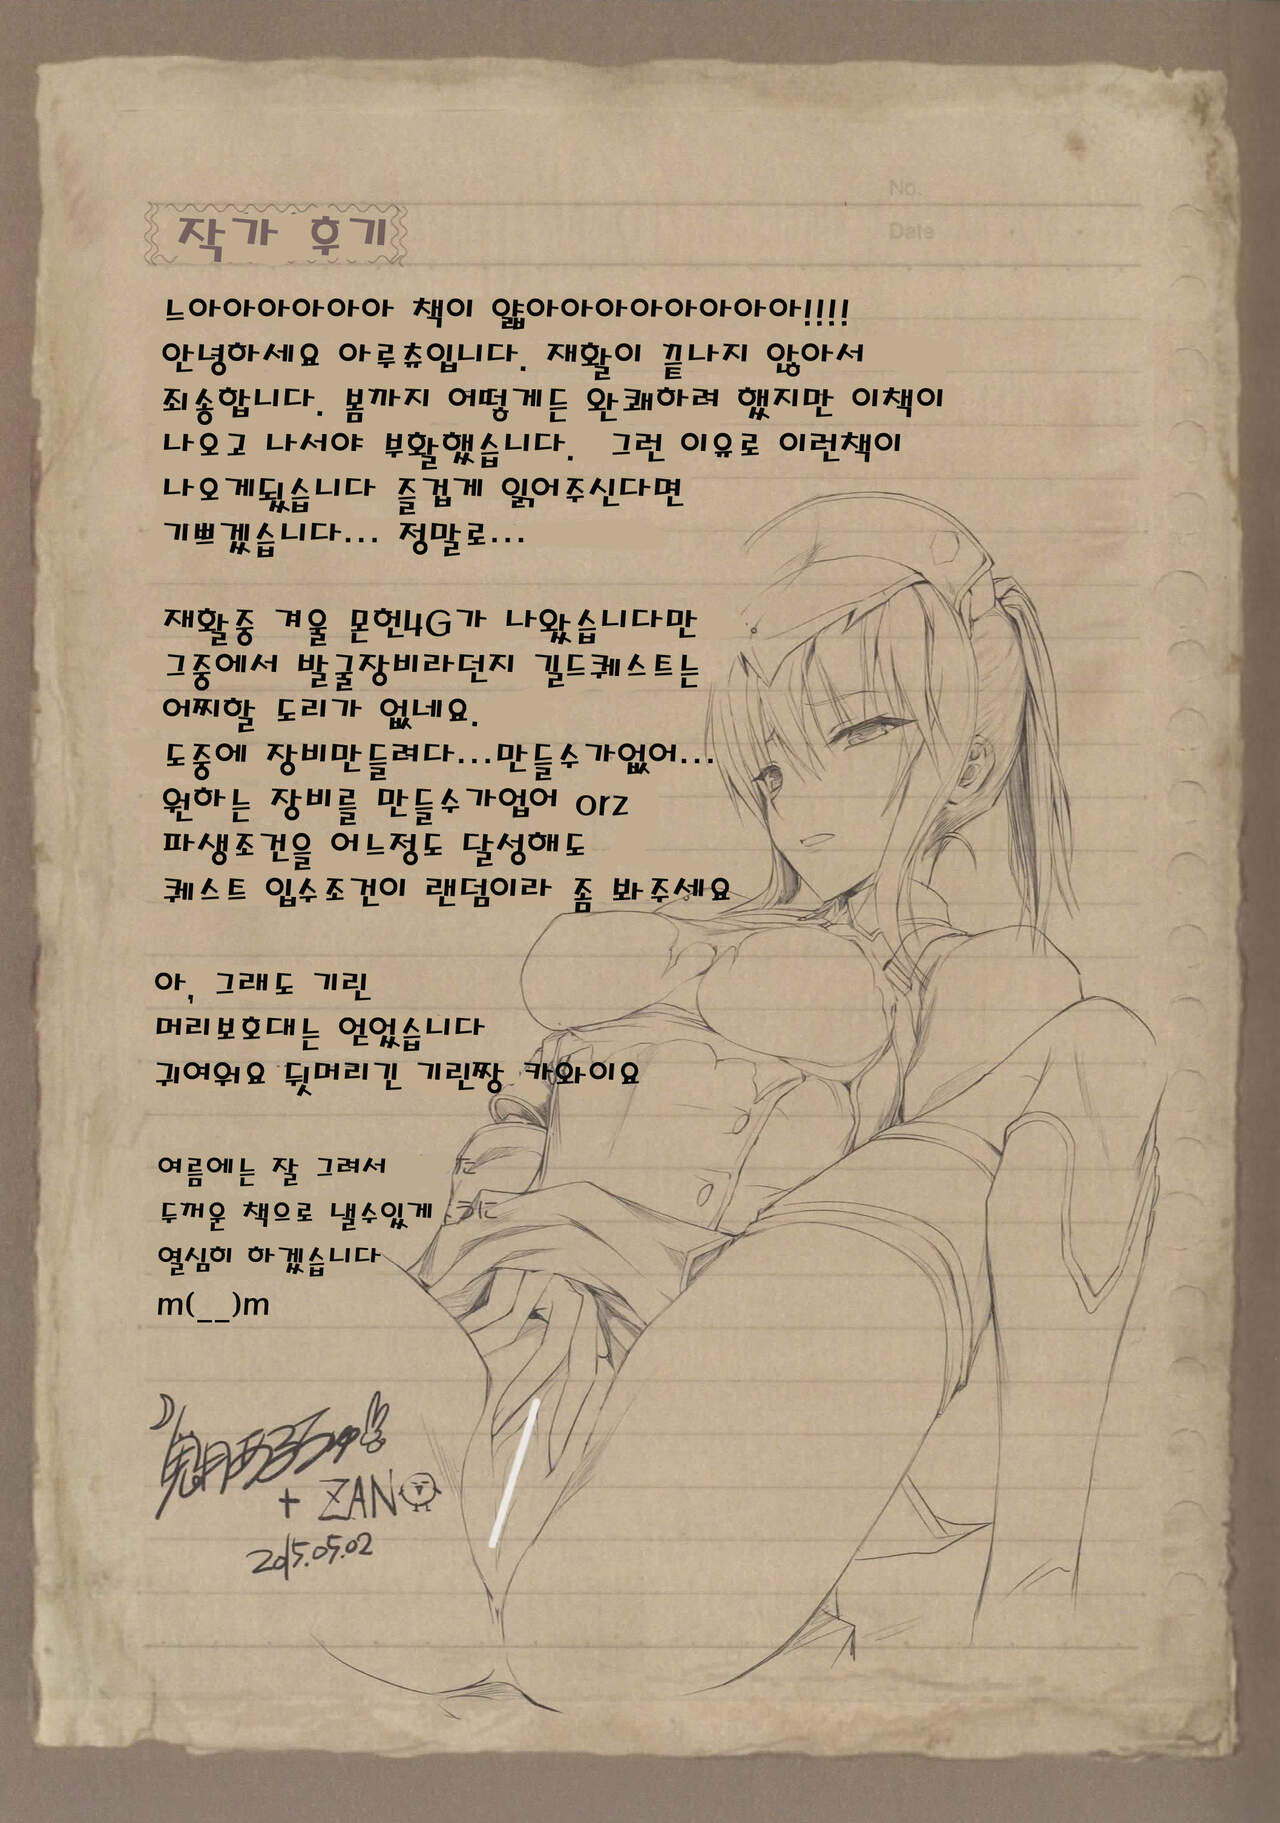 No.
Date
작가 후기
느아아아아아아 책이 얇아아아아아아아아!!!!
안녕하세요 아루츄입니다. 재활이 끝나지 않아서
죄송합니다. 봄까지 어떻게든 완쾌하려 했지만 이책이
나오고 나서야 부활했습니다. 그런 이유로 이런책이
나오게됬습니다 즐겁게 읽어주신다면
기쁘겠습니다... 정말로...
재활중 겨울 몬헌4G가 나왔습니다만
그중에서 발굴장비라던지 길드퀘스트는
어찌할 도리가 없네요.
도중에 장비만들려다...만들수가없어...
원하는 장비를 만들수가업어 orz
파생조건을 어느정도 달성해도
퀘스트 입수조건이 랜덤이라 좀 봐주세요
아, 그래도 기린
머리보호대는 얻었습니다
귀여워요 뒷머리긴 기린짱 카와이요
여름에는 잘 그려서
두꺼운 책으로 낼수있게
열심히 하겠습니다
m(__)m
鬼月あるちゅ
+ ZAN
2015.05.02